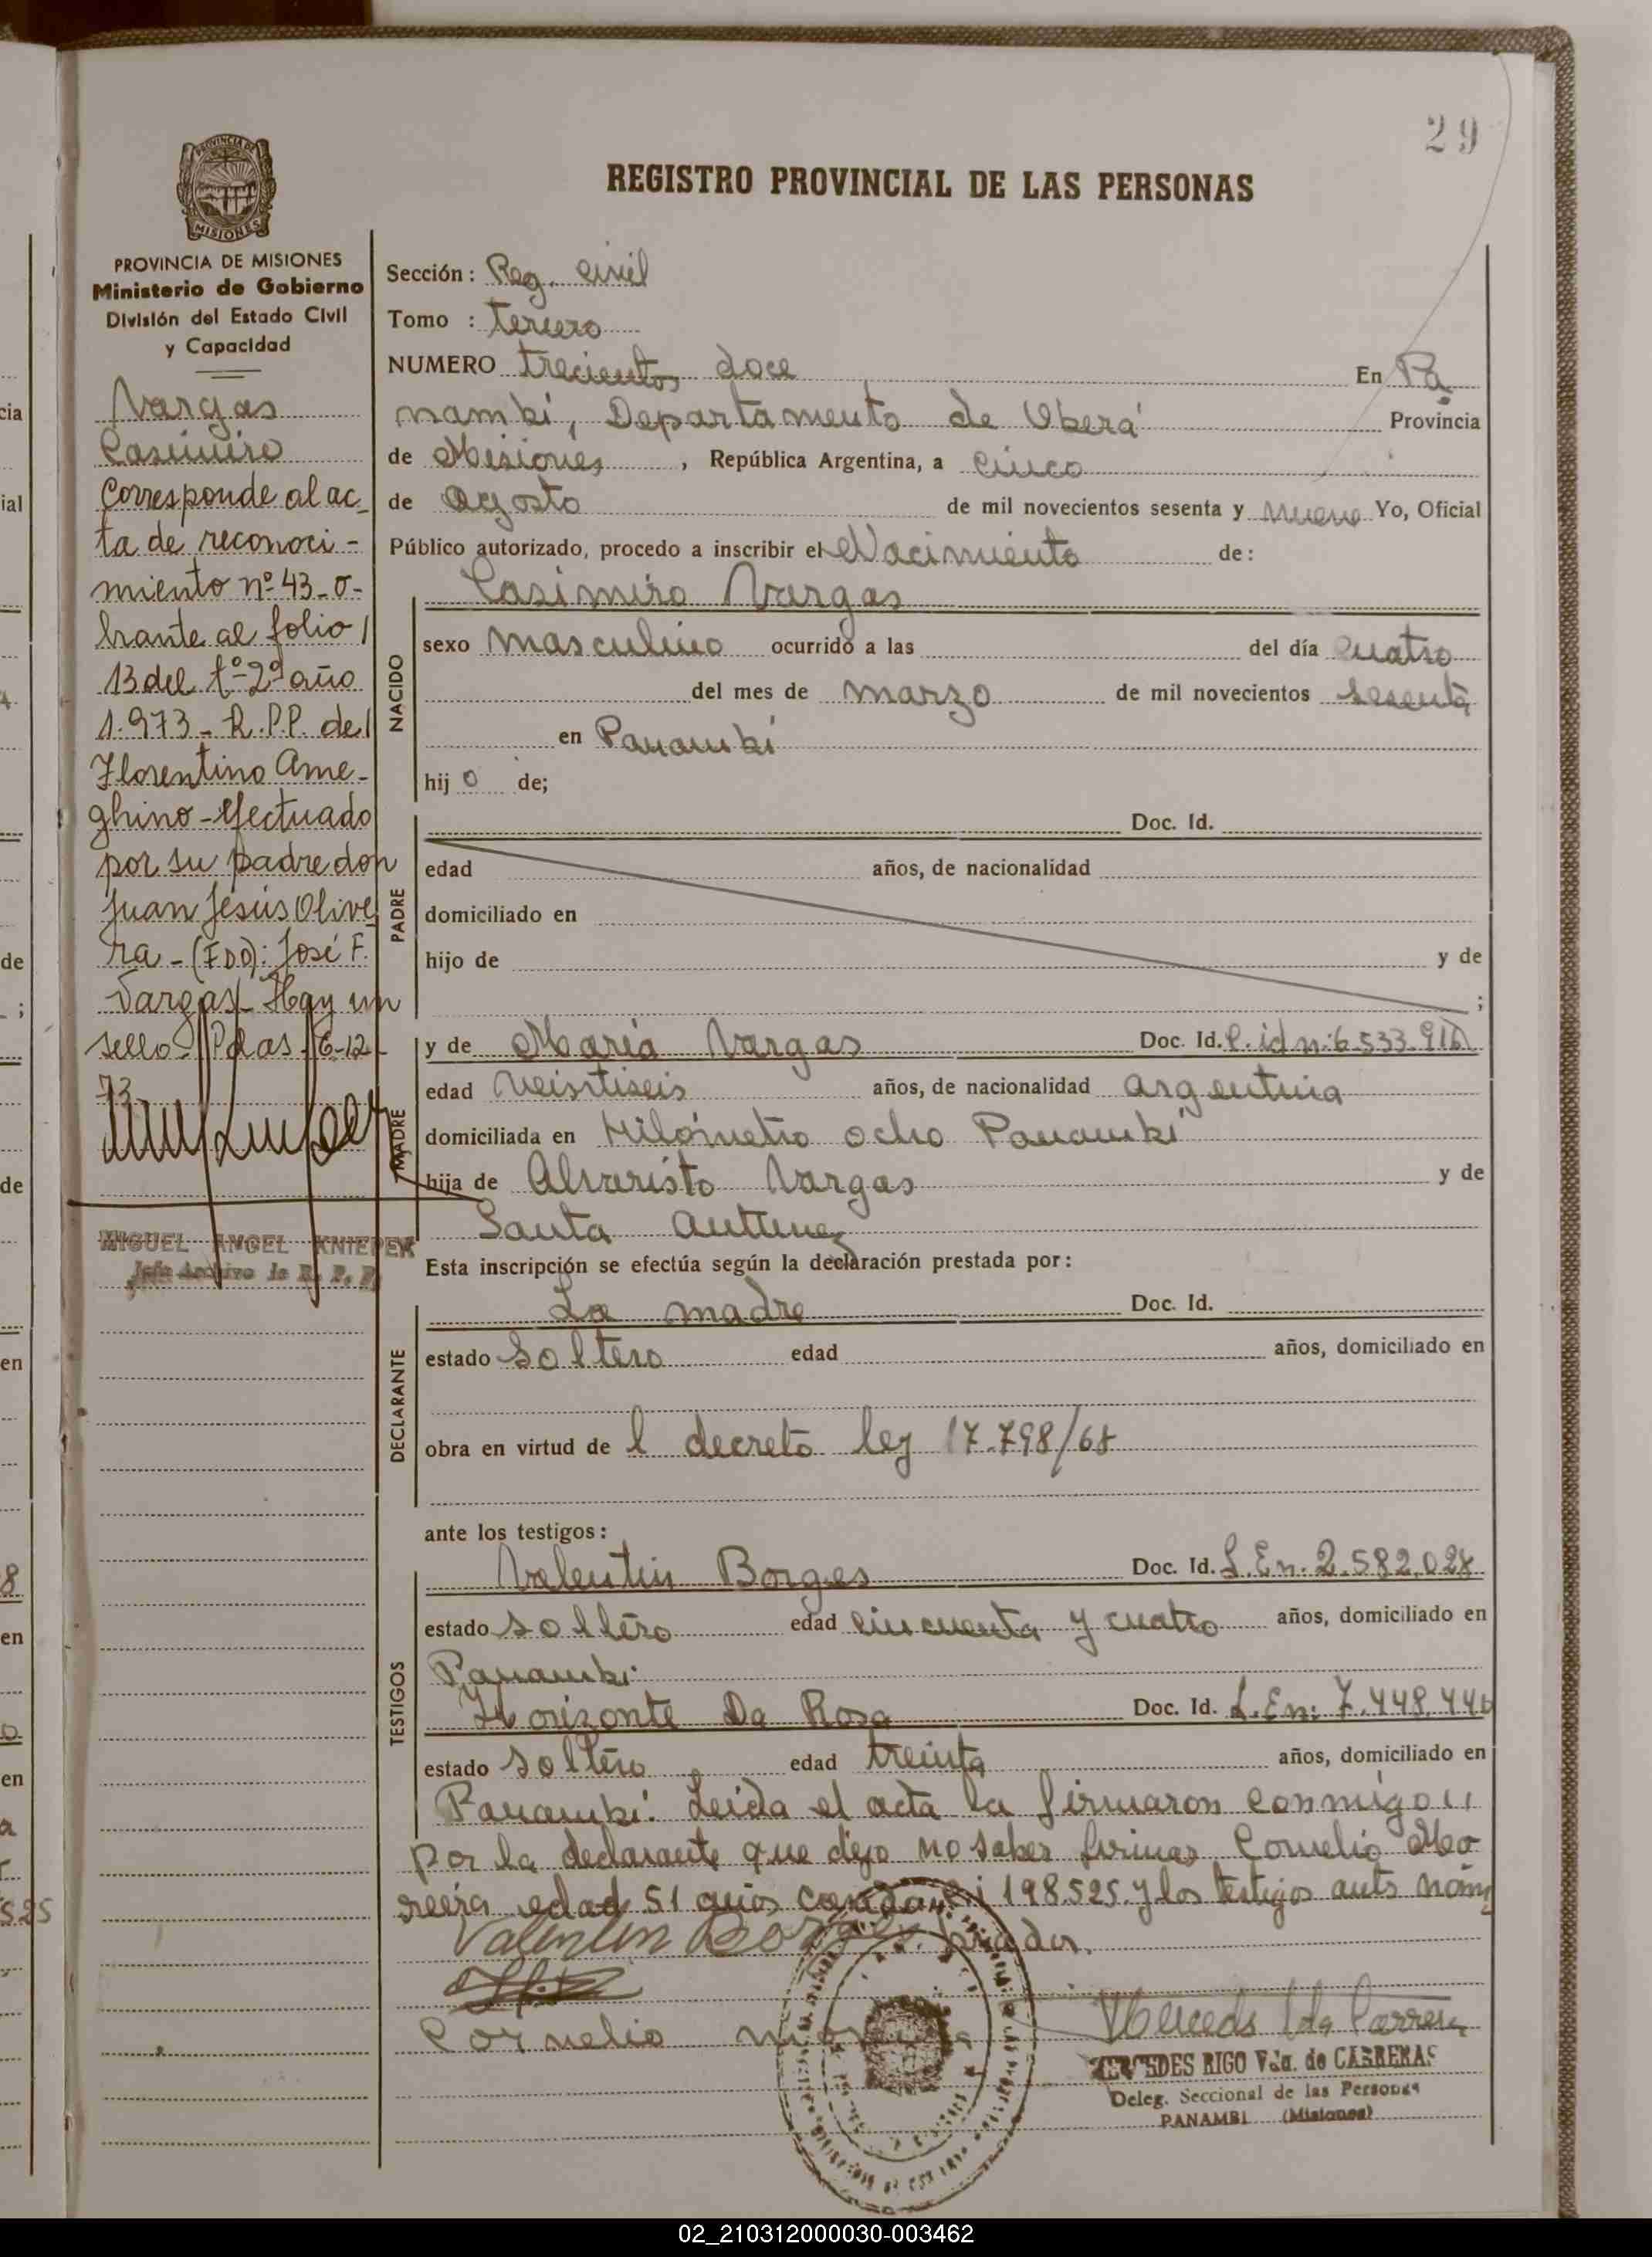 29
REGISTRO PROVINCIAL DE LAS PERSONAS
PROVINCIA DE
MISIONES
PROVINCIA DE MISIONES
Ministerio de Gobierno
División del Estado Civil
y Capacidad
Vargas
Casimiro
Corresponde al ac-
ta de reconoci-
miento nº 43-o-
brante al folio
13 del tº-2º año
1.973- R.P.P. de
Florentino Ame-
ghino-efectuado
por su padre don
Juan Jesús Olive
ra-(FDO): José F.
Vargas- Hay un
sello- Pdas 6-12-
73
MIGUEL ANGEL KNIEPER
Jefe Archivo de R. P. P.
Sección: Reg. civil
Tomo : tercero
NUMERO trecientos doce En Pa
nambí, Departamento de Oberá Provincia
de Misiones, República Argentina, a cinco
de agosto de mil novecientos sesenta y nueve Yo, Oficial
Público autorizado, procedo a inscribir el Nacimiento de:
Casimiro Vargas
NACIDO
sexo masculino ocurrido a las del día cuatro
del mes de marzo de mil novecientos sesenta
en Panambí
hij o de;
PADRE
Doc. Id.
edad años, de nacionalidad
domiciliado en
hijo de y de
;
MADRE
y de María Vargas Doc. Id. C. id n: 6.533.916
edad veistiseis años, de nacionalidad argentina
domiciliada en Kilómetro ocho Panambí
hija de Alvaristo Vargas y de
Santa
Esta inscripción se efectúa según la declaración prestada por:
DECLARANTE
La madre Doc. Id.
estado soltero edad años, domiciliado en
obra en virtud de l decreto ley 17.798/68
ante los testigos:
TESTIGOS
Valentin Borges Doc. Id. L.En. 2.582.028
estado soltero edad cincuenta y cuatro años, domiciliado en
Panambí
Horizonte Da Rosa Doc. Id. L.En: 7.448.446
estado soltero edad treinta años, domiciliado en
Panambí. Leida el acta la firmaron conmigo
por la declarante que dijo no saber firmar Cornelio Mo
reira edad 51 años 198.525 y los testigos ants nom
brados.
Valentin Borges
Cornelio
Mercedes Vda Carrera
MERCEDES RIGO Vda. de CARRERAS
Deleg. Seccional de las Personas
PANAMBI (Misiones)
02_210312000030-003462